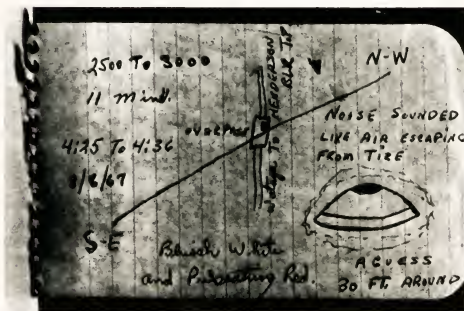 2500 TO 3000
11 Mind.
4:25 TO 4:36
1/8/67
S-E
OVERPASS
TO HENDERSON
N-W
NOISE SOUNDED
LIKE AIR ESCAPING
FROM TIRE
Bluish White
and Pulsating Red.
A GUESS
30 FT. AROUND